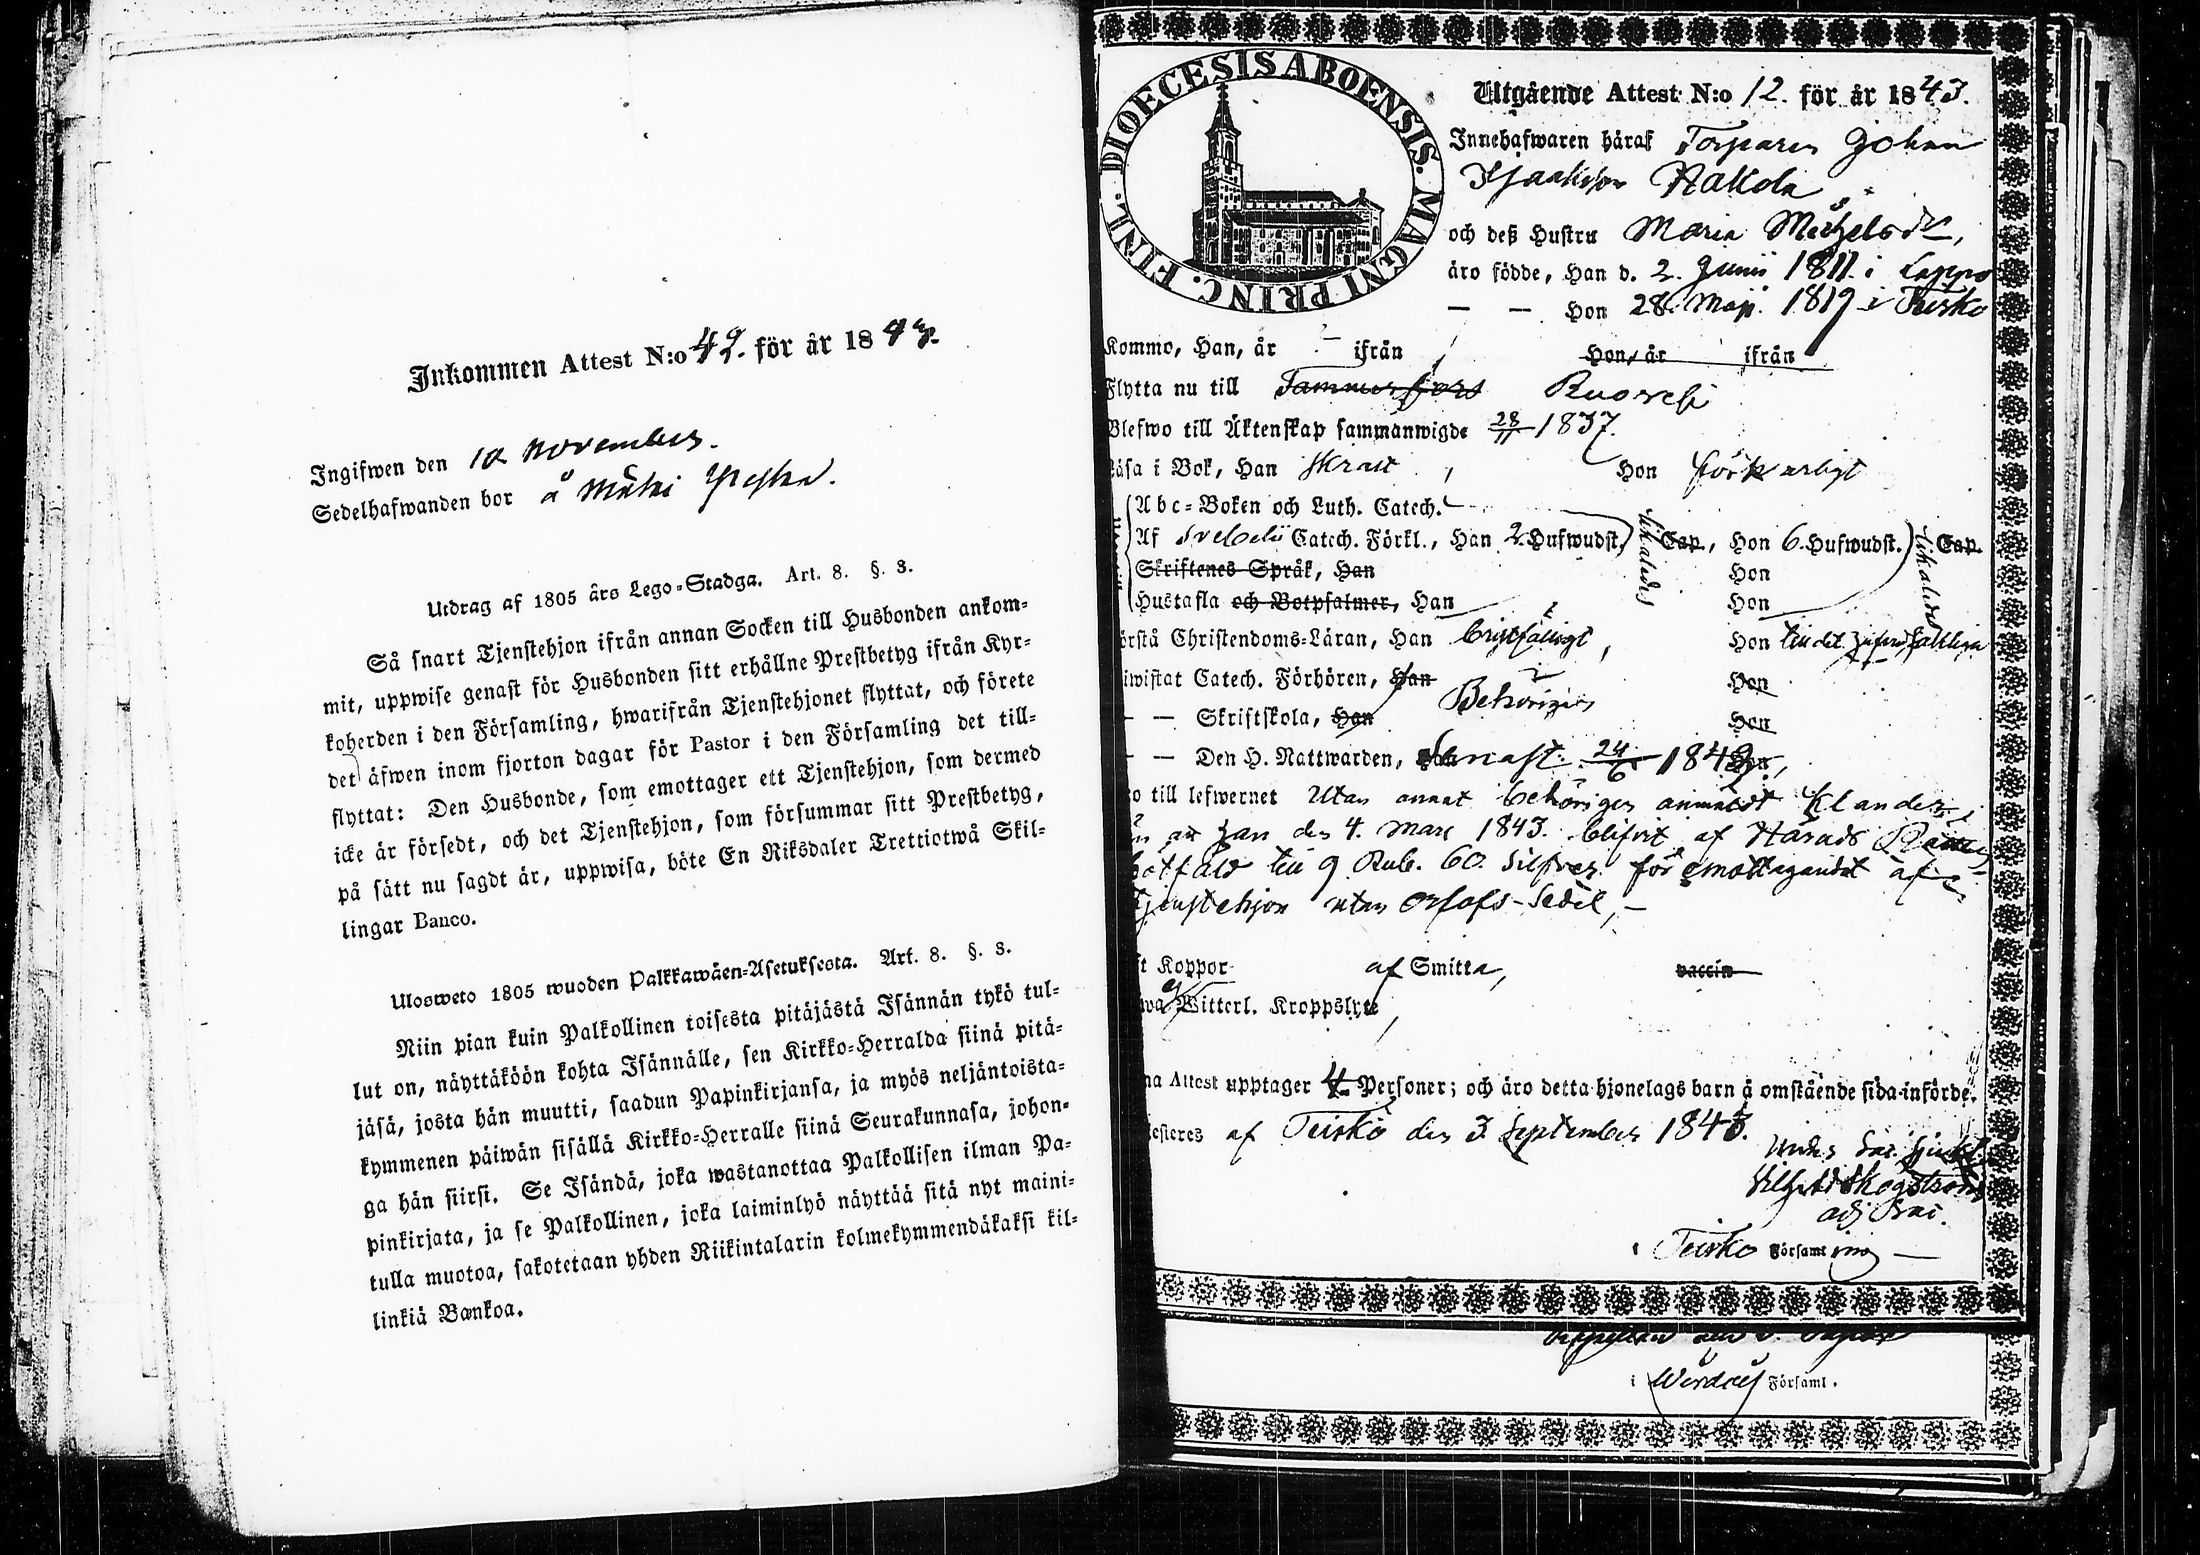 Inkommen Attest N:o 49. för år 1843.
Ingifwen den 10 November.
Sedelhafwanden bor å
Utdrag af 1805 års Lego-Stadga. Art. 8. §. 3.
Så snart Tjenstehjon ifrån annan Socken till Husbonden ankom-
mit, uppwise genast för Husbonden sitt erhållne Prestbetyg ifrån Kyr-
koherden i den Församling, hwarifrån Tjenstehjonet flyttat, och förete
det äfwen inom fjorton dagar för Pastor i den Församling det till-
flyttat: Den Husbonde, som emottager ett Tjenstehjon, som dermed
icke är försedt, och det Tjenstehjon, som försummar sitt Prestbetyg,
på sätt nu sagdt är, uppwisa, böte En Riksdaler Trettiotwå Skil-
lingar Banco.
Ulosweto 1805 wuoden Palkkawäen-Asetuksesta. Art. 8. §. 3.
Niin pian kuin Palkollinen toisesta pitäjästä Isännän tykö tul-
lut on, näyttäköön kohta Isännälle, sen Kirkko-Herralda siinä pitä-
jäsä, josta hän muutti, saadun Papinkirjansa, ja myös neljäntoista-
kymmenen päiwän sisällä Kirkko-Herralle siinä Seurakunnasa, johon-
ga hän siirsi. Se Isändä, joka wastanottaa Palkollisen ilman Pa-
pinkirjata, ja se Palkollinen, joka laiminlyö näyttää sitä nyt maini-
tulla muotoa, sakotetaan yhden Riikintalarin kolmekymmendäkaksi kil-
linkiä Bankoa.
DIOECESIS ABOENSIS. MAGNI PRINC. FINL.
Utgående Attest N:o 12. för år 1843.
Innehafwaren häraf Torparen Johan
Isaaksson
och deß Hustru Maria Michelsdr,
äro födde, Han d. 2. Junii 1811. i Lappo
— — Hon 28. Maji. 1819 i Teisko
Kommo, Han, år ifrån Hon, år ifrån
Flytta nu till Tammerfors Ruovesi
Blefwo till Äktenskap sammanwigde 28/11 1837.
läsa i Bok, Han Hon förswarligt
Abc-Boken och Luth. Catech.
Af Svebelii Catech. Förkl., Han 2. Hufwudst. Cap., Hon 6. Hufwudst. Cap.
Skriftenes Språk, Han Hon
Hustafla och Botpsalmer, Han Hon
örstå Christendoms-Läran, Han bristfälligt, Hon till det
iwistat Catech. Förhören, Han Hon
— — Skriftskola, Han Behörigen Hon
— — Den H. Nattwarden, senast 24/6 1843,
o till lefwernet Utan annat behörigen anmäldt klander,
än att han den 4. Mars 1843. blifvit af Härads Rätten
botfäld till 9 Rub. 60. Silfver för emottagandet af
Tjenstehjon utan Orlofs-Sedel,
t Koppor af Smitta, vaccin
wa Witterl. Kroppslyte
na Attest upptager 4 Personer; och äro detta hjonelags barn å omstående sida införde.
testeres af Teisko den 3. September 1843.
Skogström
adj
i Teisko Församling
i Församl.